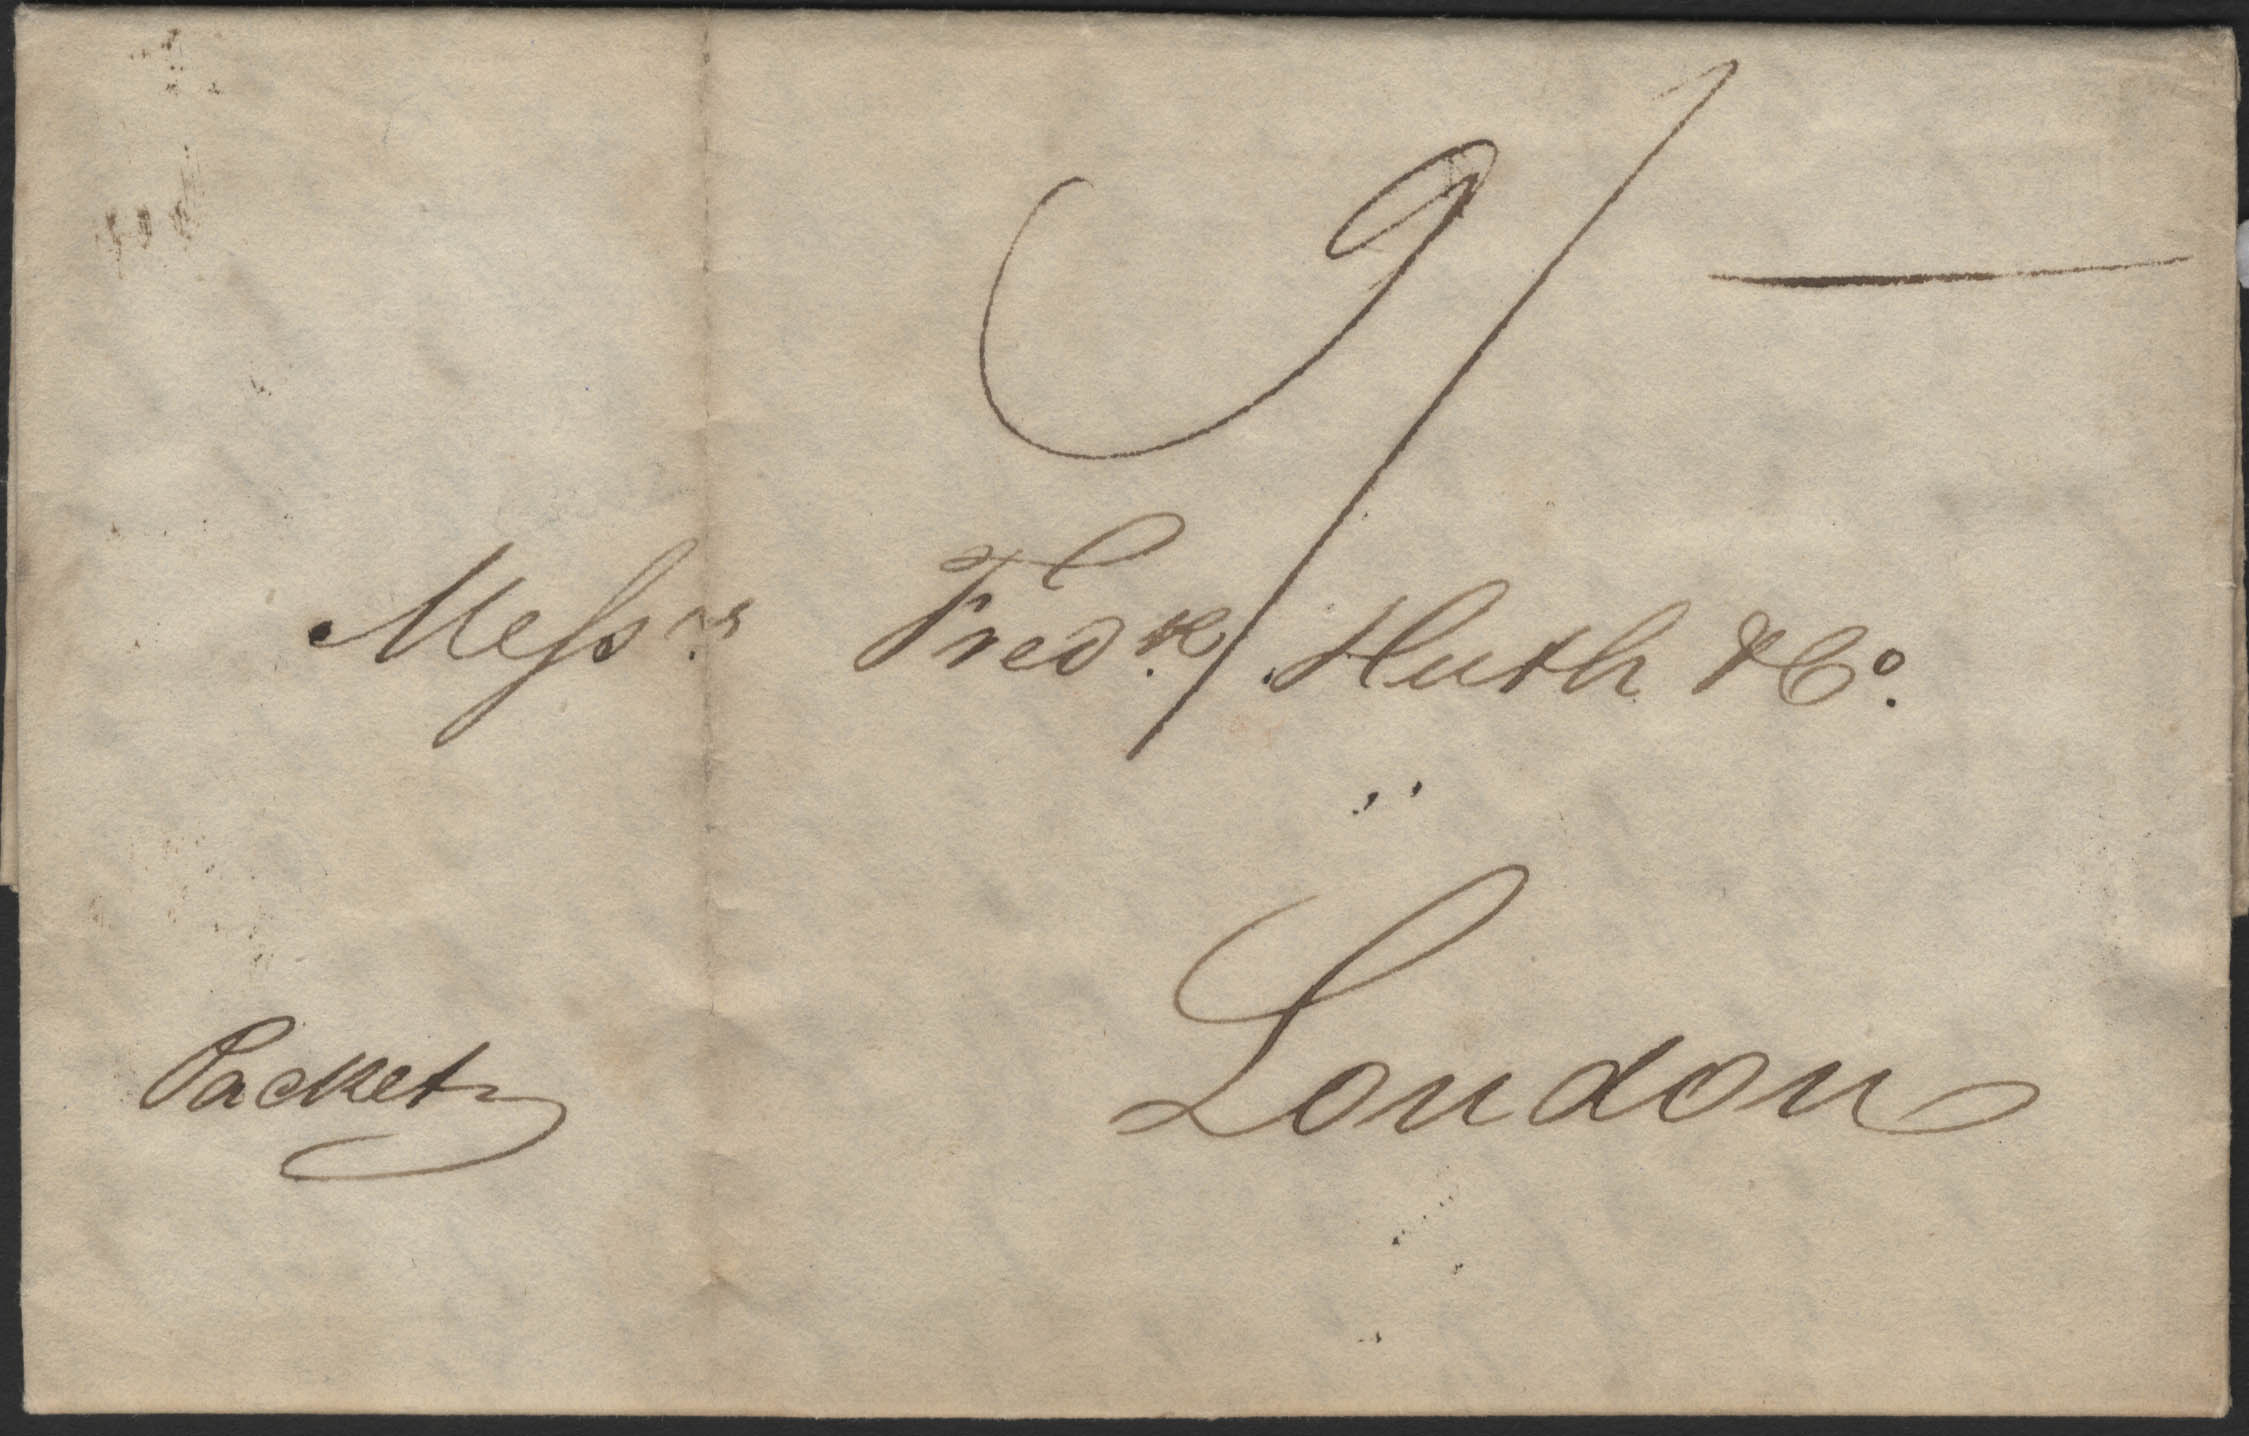 9/-
Messrs. Fredk. Huth & Co.
London
Packet